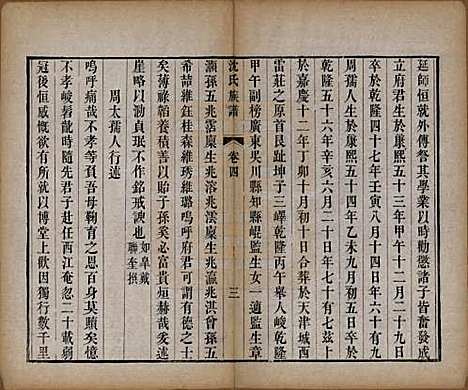 延師恒就外傅督其學業以時勸懲諸子皆奮發成
立府君生於康熙五十三年甲午十二月二十九日
卒於乾隆四十七年壬寅八月十四日年六十有九
周孺人生於康熙五十四年乙未九月初六日卒於
乾隆五十六年辛亥六月二十日年七十有七茲上
於嘉慶十二年丁卯十月初十日合葬於天津城西
雷莊之原首艮趾坤子三嶧乾隆丙午舉人峻乾隆
甲午副榜廣東吳川縣知縣崐監生女一適監生章
沈氏族譜
卷四
三
灝孫五兆澐廩生兆溶兆澐廩生兆瀛兆洪曾孫五
希詰維鈺桂森維琇維璐嗚呼府君可謂有德之士
矣薄祿韜奇積善以貽子孫矣必富貴烜赫哉爰舉
崖略以泐貞珉不作銘戒諛也如皋戴聯奎撰
周太孺人行述
嗚呼痛哉不孝等尚忍言吾母鞠育之身莫贖矣憶
不孝峻髫齔時隨先君子赴西江奄忽二十載弱
冠後恒感慨欲有以博堂上歡因又獨行數千里